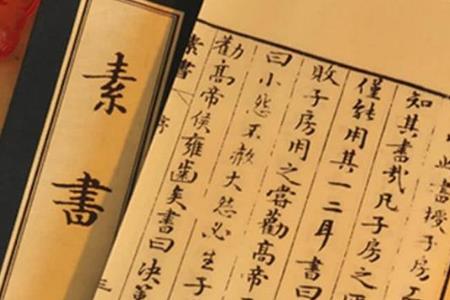 素書
此書授子房
知其書哉凡子房之
僅能用其一二耳書曰
敗子房用之嘗勸高帝
曰小怨不赦大怨必生子
勸高帝侯雍齒矣書曰決策
素書 序 三